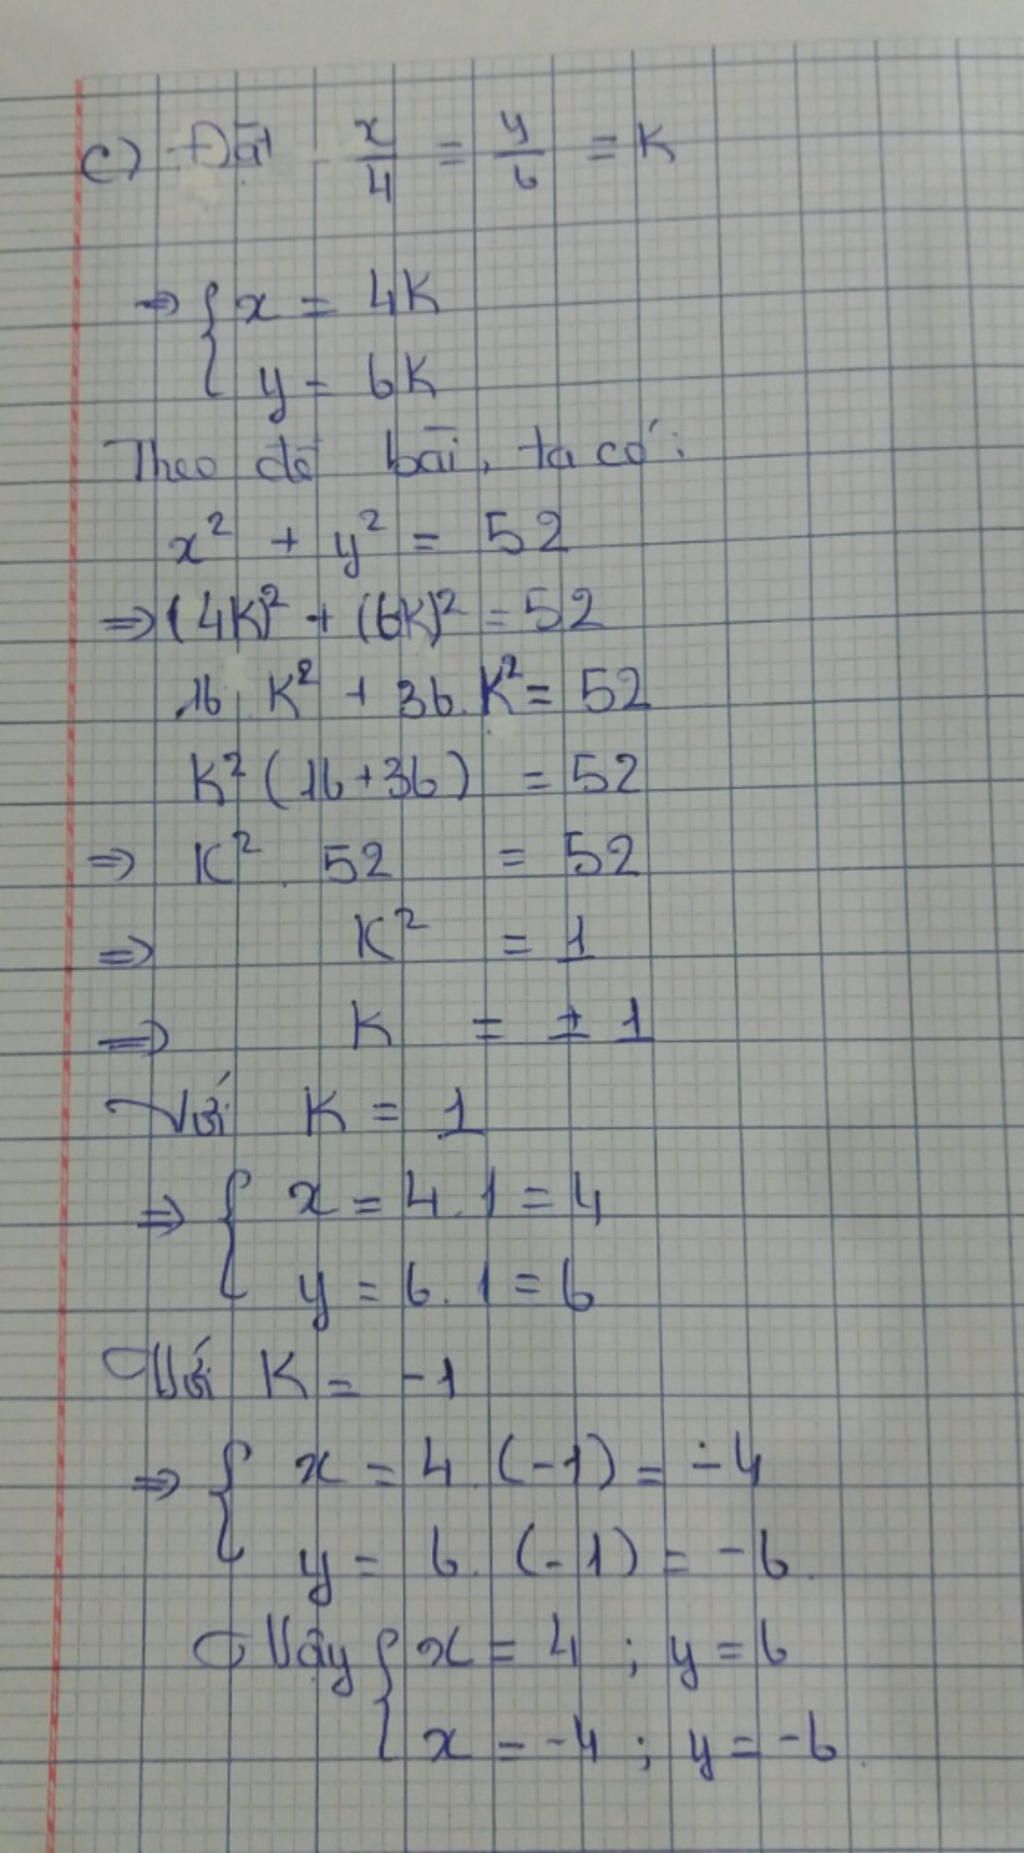 c) Đặt x/4 = y/6 = K
⇒ { x = 4K
y = 6K
Theo đề bài, ta có:
x² + y² = 52
⇒ (4K)² + (6K)² = 52
16. K² + 36. K² = 52
K² (16+36) = 52
⇒ K² . 52 = 52
⇒ K² = 1
⇒ K = ± 1
Với K = 1
⇒ { x = 4.1 = 4
y = 6.1 = 6
Với K = -1
⇒ { x = 4.(-1) = -4
y = 6.(-1) = -6.
Vậy { x = 4 ; y = 6
x = -4 ; y = -6.